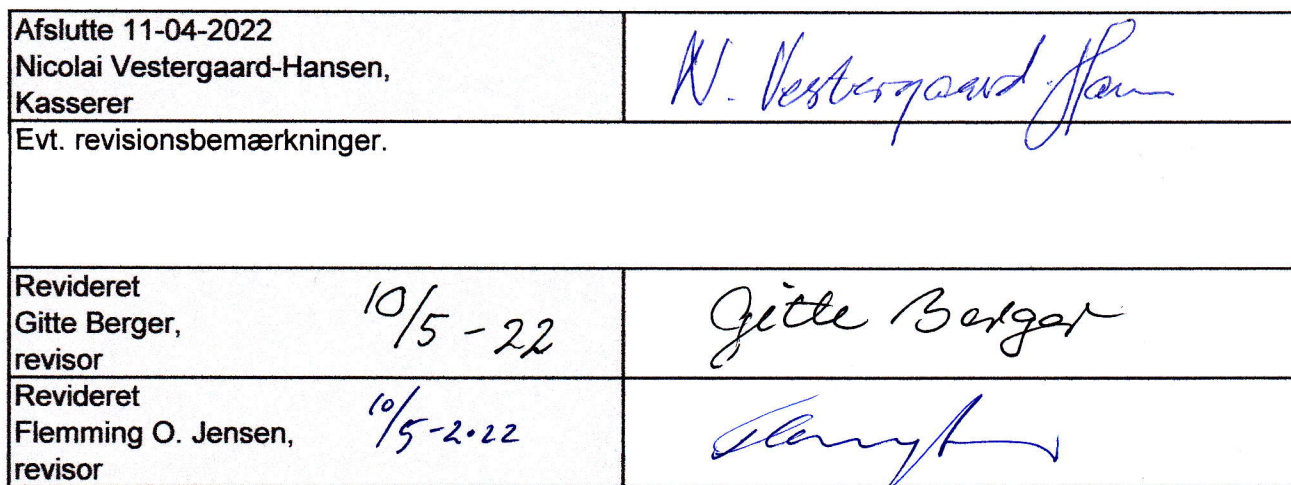 Afslutte 11-04-2022
Nicolai Vestergaard-Hansen,
Kasserer
N. Vestergaard-Han
Evt. revisionsbemærkninger.
Revideret
Gitte Berger,
revisor
10/5-22
Gitte Berger
Revideret
Flemming O. Jensen,
revisor
10/5-2022